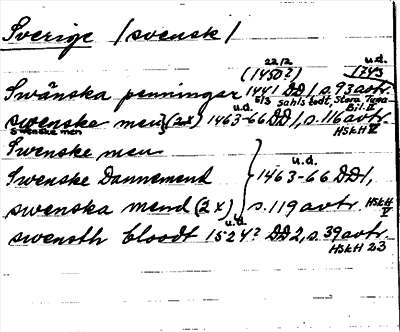 Sverige /svensk/
22/2 u.d.
(1450?) 1743
Swänska penningar 1441 DD1, s. 93 avtr.
5/3 Sahlstedt, Stora Tuna
u.d. Bil. II
swenske men (2x) 1463-66 DD1, s. 116 avtr.
swenske men HSkH V
Swenske men
u.d.
Swenske Dannement 1463-66 DD1,
swenska mend (2x) s. 119 avtr. HSkH V
u.d.
swensth bloodt 1524? DD2, s. 39 avtr.
HSkH 23